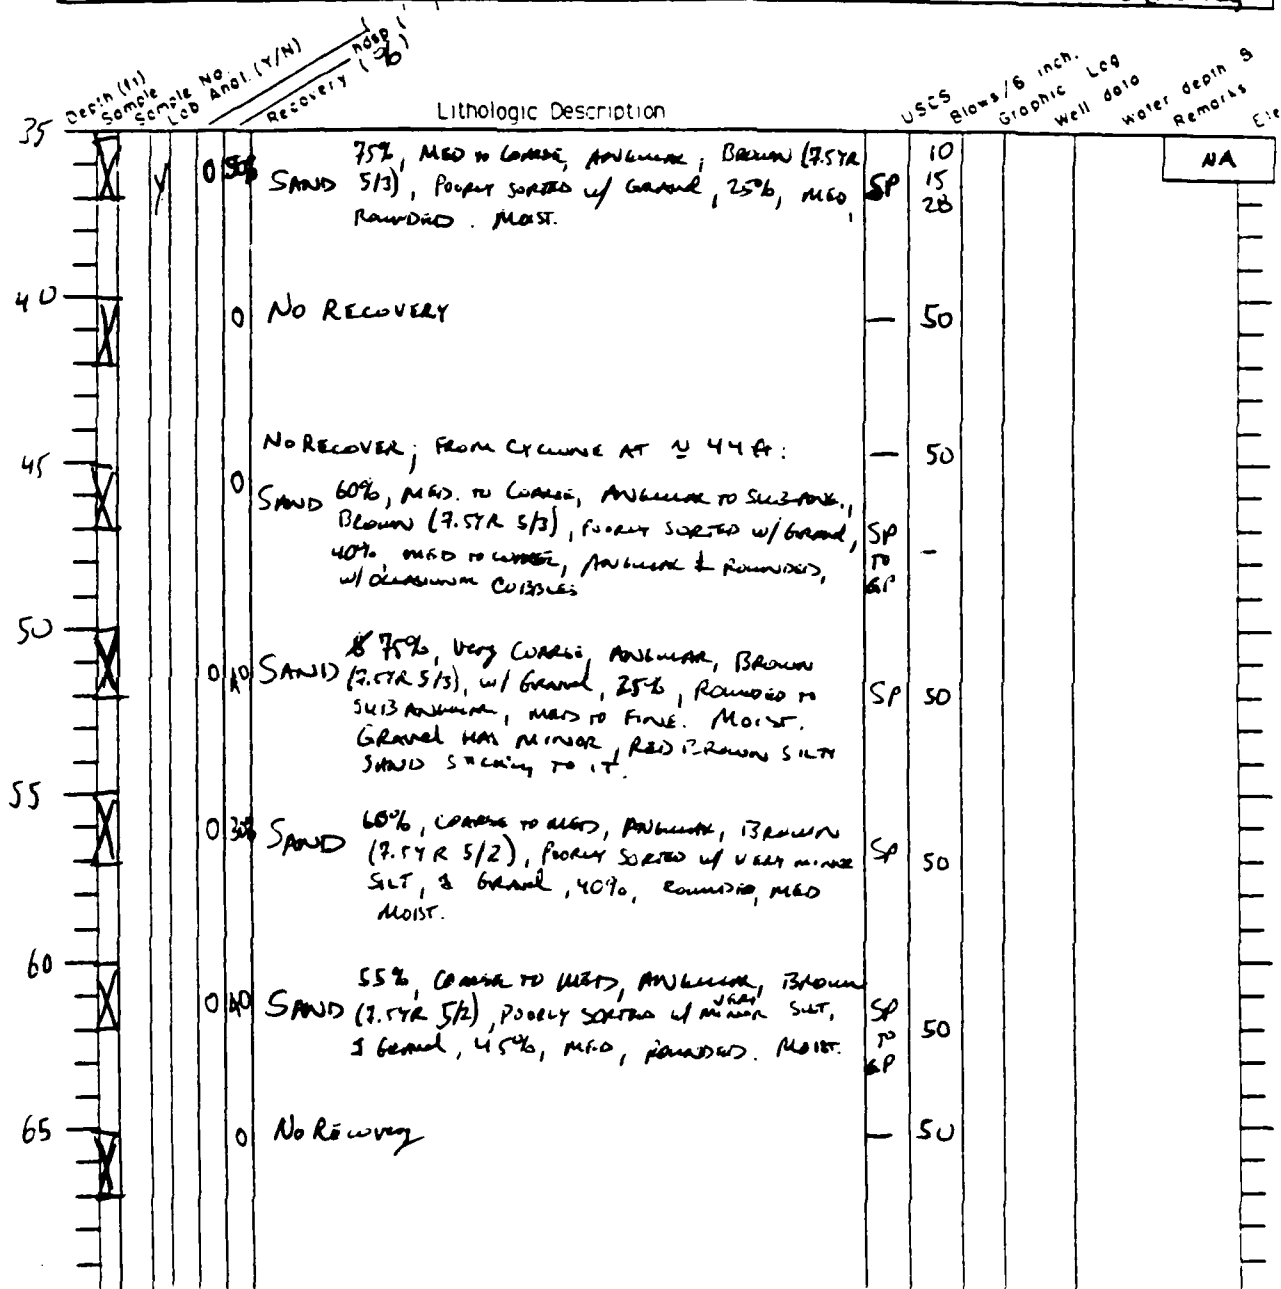 Depth (ft)
Sample
Sample No.
Lab Anal. (Y/N)
Recovery (%)
Lithologic Description
USCS
Blows/6 inch.
Graphic Log
Well data
Water depth &
Remarks
Ele
35
Y 0 50%
SAND 75%, MED TO COARSE, ANGULAR, BROWN (7.5YR
5/3), POORLY SORTED W/ GRAVEL, 25%, MED,
ROUNDED. MOIST.
SP
10
15
28
NA
40
0 NO RECOVERY — 50
NO RECOVER; FROM CYCLONE AT ≈ 44 ft: — 50
45
0
SAND 60%, MED. TO COARSE, ANGULAR TO SUBANG.,
BROWN (7.5YR 5/3), POORLY SORTED W/ GRAVEL,
40%, MED TO COARSE, ANGULAR & ROUNDED,
W/ OCCASIONAL COBBLES
SP
TO
GP
–
50
0 40
SAND 75%, Very COARSE, ANGULAR, BROWN
(7.5YR 5/3), W/ GRAVEL, 25%, ROUNDED TO
SUBANGULAR, MED TO FINE. MOIST.
GRAVEL HAS MINOR, RED BROWN SILTY
SAND STICKING TO IT.
SP 50
55
0 30%
SAND 60%, COARSE TO MED, ANGULAR, BROWN
(7.5YR 5/2), POORLY SORTED W/ VERY MINOR
SILT, & GRAVEL, 40%, ROUNDED, MED
MOIST.
SP 50
60
0 40
SAND 55%, COARSE TO MED, ANGULAR, BROWN
(7.5YR 5/2), POORLY SORTED W/ VERY MINOR SILT,
& GRAVEL, 45%, MED, ROUNDED. MOIST.
SP
TO
GP
50
65
0 No Recovery — 50